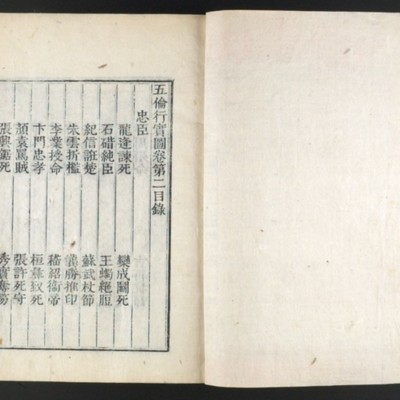 五倫行實圖卷第二目錄
忠臣
龍逢諫死 欒成鬪死
石碏純臣 王蠋絶脰
紀信誑楚 蘇武杖節
朱雲折檻 龔勝推印
李業授命 嵇紹衛帝
卞門忠孝 桓彝致死
顔袁罵賊 張許死守
張興鋸死 秀實奪笏